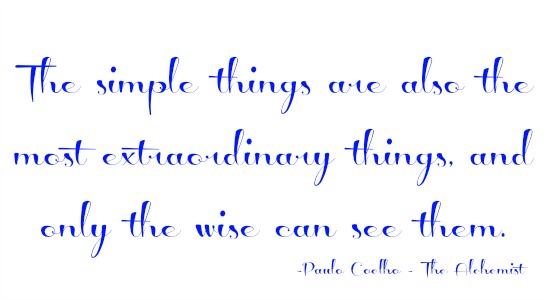 The simple things are also the
most extraordinary things, and
only the wise can see them.
-Paulo Coelho - The Alchemist